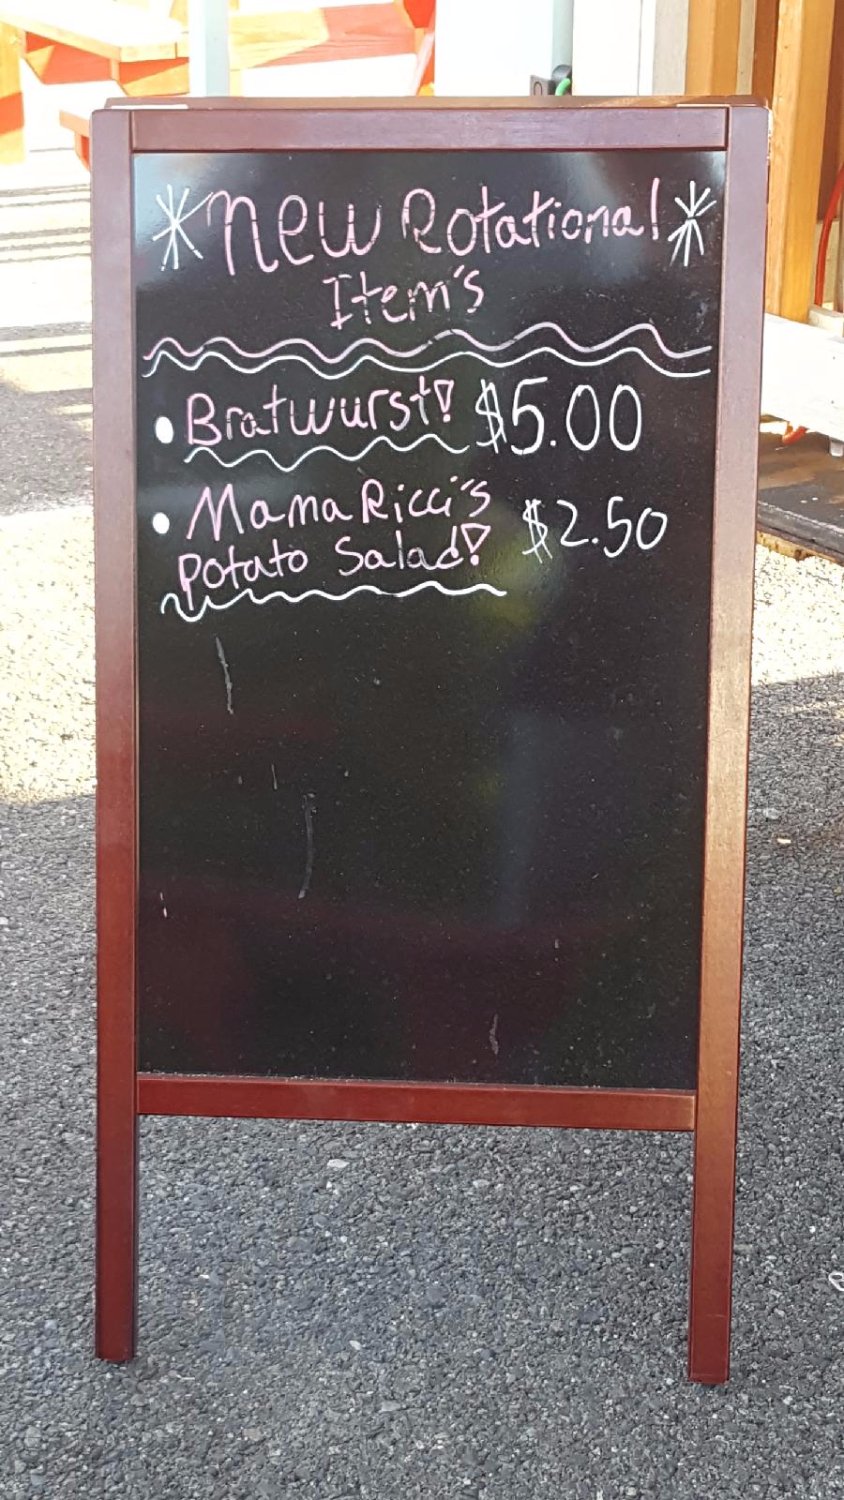 *New Rotational*
Item's
• Bratwurst! $5.00
• Mama Ricci's
Potato Salad! $2.50